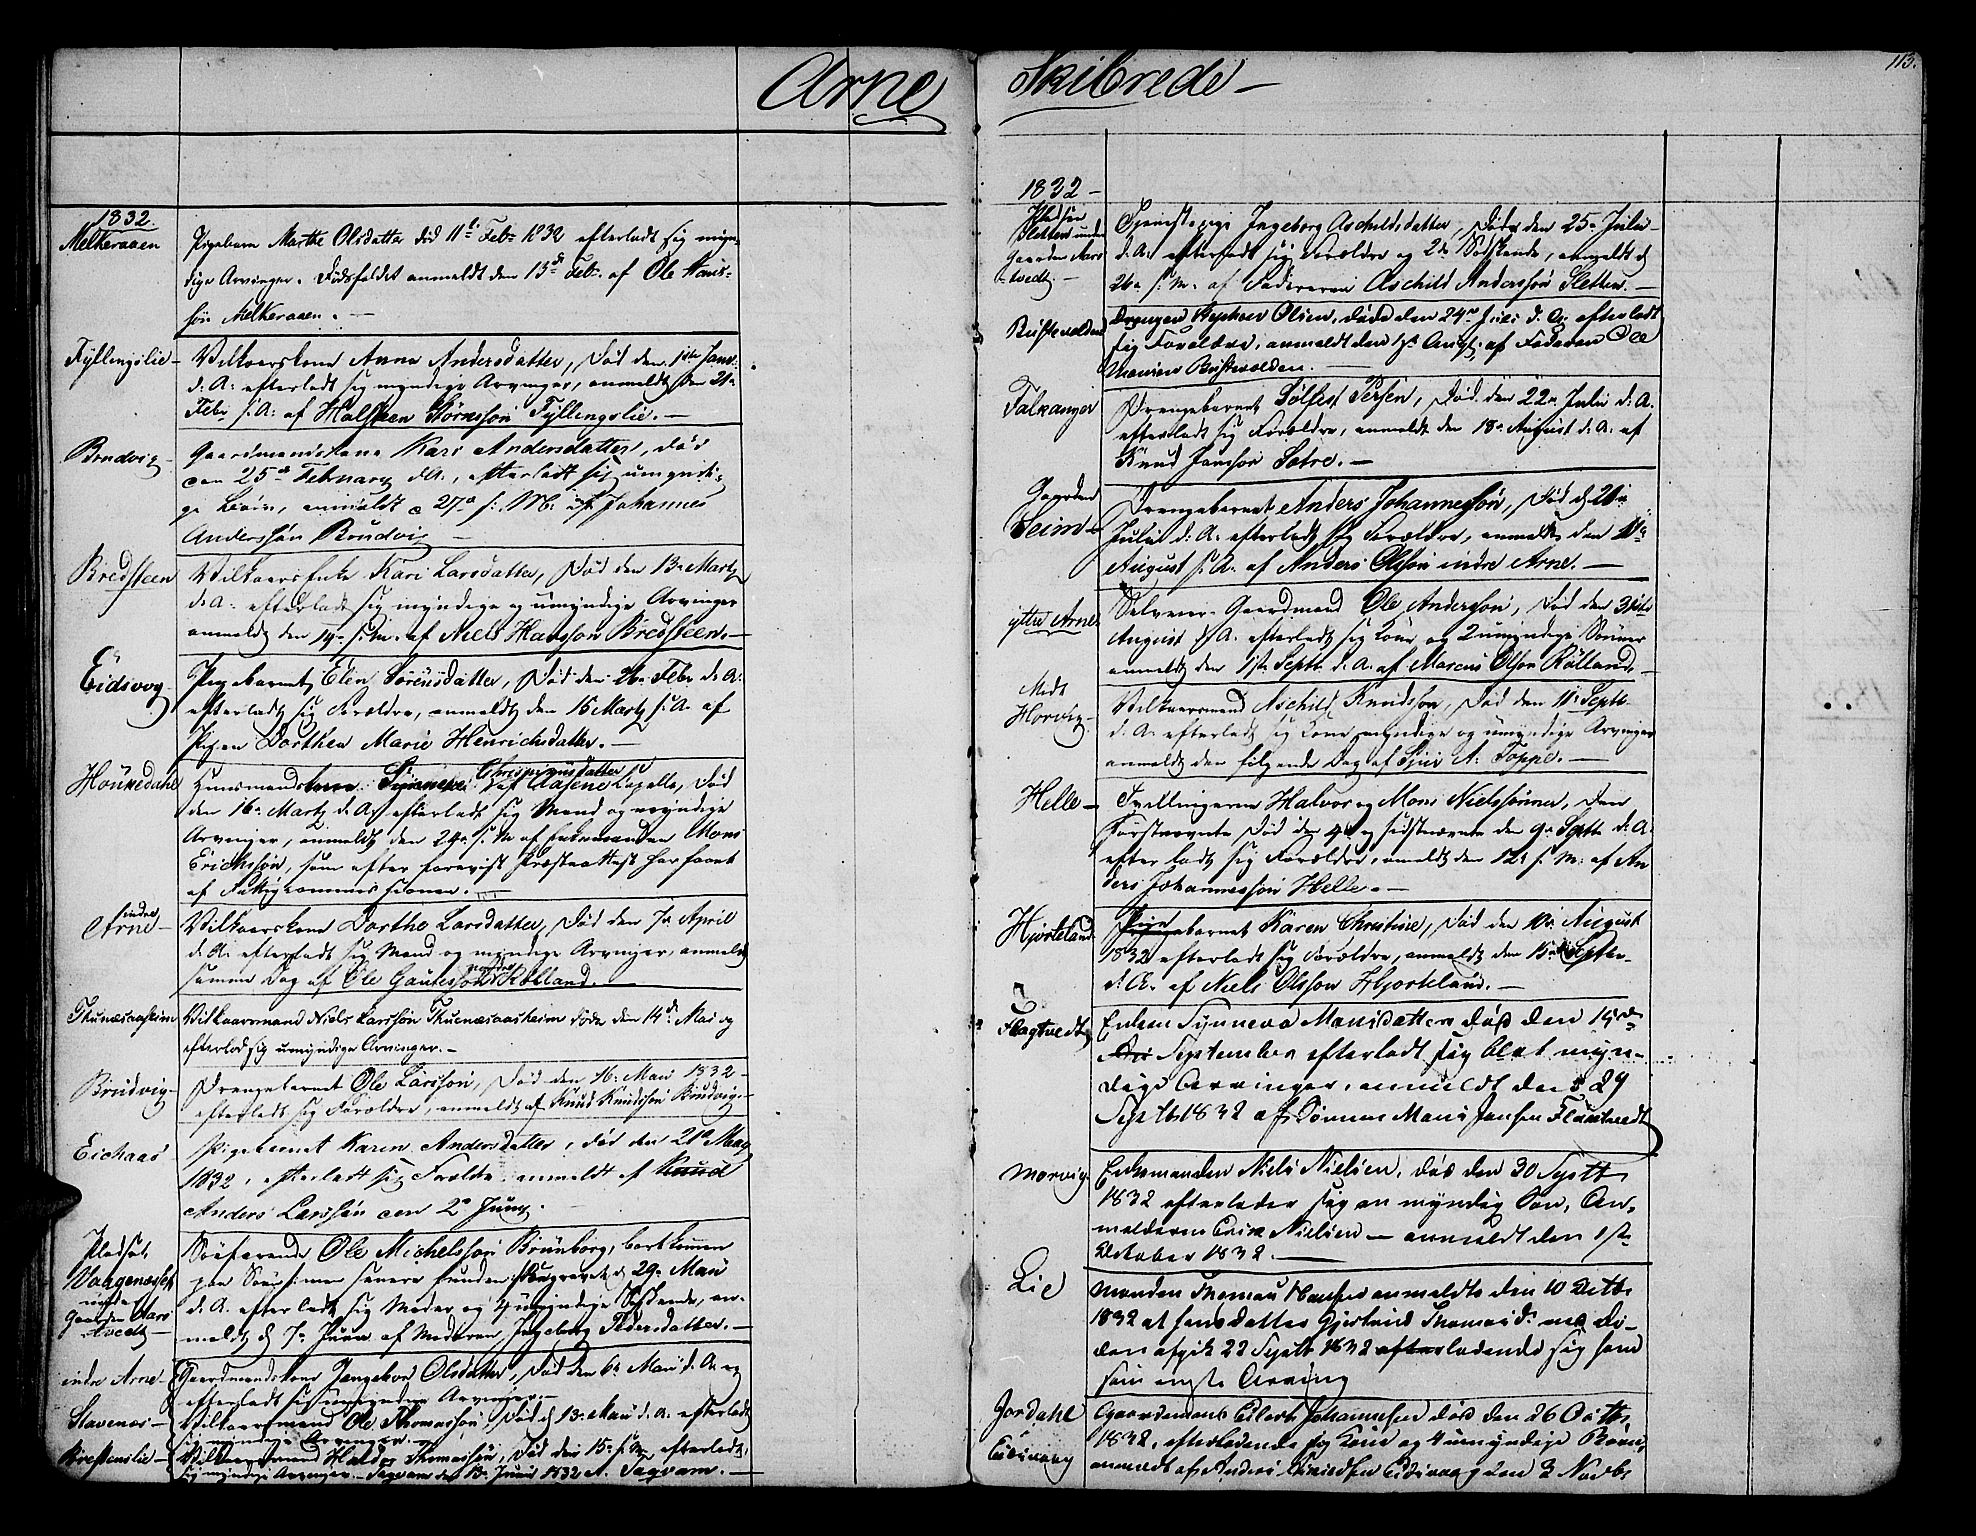 Arne
1832.
Melkeraaen
Pigebarn Marthe Olsdatter død 11te Febr 1832 efterladt sig myn-
dige Arvinger. Dødsfaldet anmeldt den 13de Febr. af Ole Hans-
søn Melkeraaen. —
Fyllingslie
Vilkaarskone Anna Andersdatter, Død den 1ste Janr.
d. A. efterladt sig myndige Arvinger, anmeldt den 21n
Febr s. A. af Halsteen Størnssøn Fyllingslie. —
Brudvig
Gaardmandskone Kari Andersdatter, død
den 25de February d.A., efterladt sig umyndi-
ge Børn, anmeldt d 27de s. M. af Johannes
Anderssøn Brudvig
Bredsteen
Vilkaarsenke Kari Larsdatter, Død den 13n Martz
d. A. efterladt sig myndige og umyndige Arvinger
anmeldt den 14n s. M. af Niels Hanssøn Bredsteen. —
Eidsvog
Pigebarnet Elen Sørensdatter, Død den 26n Febr d. A.
efterladt sig Forældre, anmeldt den 15 Martz s. A. af
Pigen Dorthea Marie Henrichsdatter. —
Hounedahl
Huusmandskone Synneve Chrispinusdatter af Aasene Capelle, Død
den 16n Martz d. A. efterladt sig Mand og myndige
Arvinger, anmeldt den 24n s. M af Enkemanden Mons
Erichssøn, som efter foreviist Præsteattest har faaet
af Fattigcommissionen. —
indre
Arne
Vilkaarskone Dorthe Larsdatter, Død den 7n April
d. A. efterladt sig Mand og myndige Arvinger, anmeldt
samme Dag af Ole Gautessøn nordre Rølland. —
Thunesaasheim
Vilkaarsmand Niels Larssøn Thunesaasheim døde den 14de Mai og
efterlod sig umyndige Arvinger. —
Brudvig
Drengebarnet Ole Larssøn, Død den 16n Maii 1832 —
efterladt sig Forældre, anmeldt af Knud Knudssøn Brudvig. —
Eichaas
Pigebarnet Karen Andersdatter, død den 21de Maay
1832, efterladt sig Forældre anmeldt af Knud
Anders Larssøn den 2de Juny.
Pladset
Vaagenæsset
under
Gaarden Aars
tvedt
Søefarende Ole Michelssøn Brunborg, bortkommen
paa Søen siden senere funden, begravet d 29n Maii
d. A. efterladt sig Moder og 4 umyndige Sødskende, an-
meldt d 7n Juni af Moderen Ingeborg Pedersdatter. —
indre Arne
Gaardmandskone Jngebor Olsdatter, Død den 6n Maii d. A. og
efterladt sig umyndige Arvinger. —
Stavenæs
Vilkaarsmand Ole Thomassøn, Død d 13n Maii d. A. efterladt
sig myndige Arvinger. —
Breistenslie
Vilkaarsmand Haldor Thomassøn, Død den 15n s. M. efterladt
sig myndige Arvinger — Tagvam den 13n Junii 1832 A. Tagvam. —
Skibrede —
113.
1832 —
Pladsen
Sletten under
Gaarden Aars
tvedt
Tjenestepige Ingeborg Aschildsdatter, Døde den 25n Julii
d. A. efterladt sig Forældre og 2de Sødskende, anmeldt d
26n s. M. af Faderen Aschild Anderssøn Sletten. —
Bustevolden
Drengen Stephen Olsen, døde den 24de Juli d. A. efterladt
sig Forældre, anmeldt den 1ste Augt. af Faderen Ole
Monsen Bustevolden. —
Falkanger
Drengebarnet Sølfest Persen, Død den 22n Julii d. A.
efterladt sig Forældre, anmeldt den 18n August d. A. af
Knud Janssøn Sætre. —
Gaarden
Seim
Drengebarnet Anders Johannessøn, Død d 26n
Julii d. A. efterladt sig Forældre, anmeldt den 11n
August s. A. af Anders Olssøn indre Arne. —
ytre Arne
Selveier Gaardmand Ole Anderssøn, Død den 31ste
August d. A. efterladt sig Kone og 2 umyndige Sønner
anmeldt den 1ste Septb. d. A. af Marcus Olsøn Rølland. —
Midt
Horvig
Vilkaarsmand Aschild Knudssøn, Død den 11n Septb
d. A. efterladt sig Kone myndige og umyndige Arvinger
anmeldt den følgende Dag af Siur A. Toppe. —
Helle
Tvillingerne Halvor og Mons Nielssønner, den
Førstnevnte Død den 4de og sidstnevnte den 9n Septb d. A.
efterladt sig Forældre, anmeldt den 12n s. M. af An
ders Johannessøn Helle. —
Hjorteland
Pigebarnet Karen Christine, Død den 10n August
1832 efterladt sig Forældre, anmeldt den 15de Septbr
d. A. af Niels Olssøn Hjorteland. —
Flagtvedt
Enken Synneva Monsdatter død den 15de
September efterladt sig blot myn-
dige Arvinger, anmeldt den 29
Septb 1832 af Sønnen Mons Jansen Flagtvedt
Morvig
Enkemanden Niels Nielsen, død den 30 Septb
1832 efterlader sig en myndig Søn, An-
melderen Erik Nielsen — anmeldt den 1ste
October 1832. —
Lie
Manden Thomas Hansen anmeldte den 10 Octb.
1832 at hans datter Gjertrud Thomasd. ved Dø-
den afgik 22 Septb 1832 efterladende sig ham
som eneste Arving
Jordahl
Eidsvaag
Gaardmand Eilert Johannessen død den 26 Octb.
1832, efterladende sig Kone og 4 umyndige Børn,
anmeldt af Anders Eidsvaag den 3 Novb.